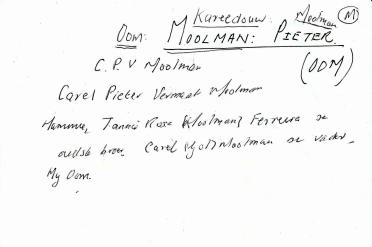 Kareedouw. Moolman (M)
Oom: MOOLMAN: PIETER.
C.P.V Moolman (OOM)
Carel Pieter Vermaak Moolman
Mammie, Tannie Rosa (Moolman) Ferreira se
oudste broer, Carel Moolman se vader.
My Oom.